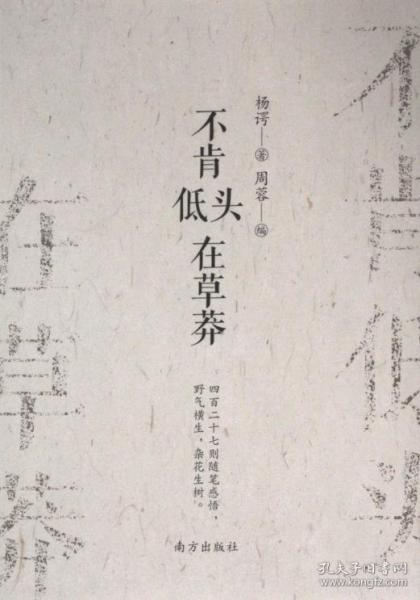 不肯低头在草莽
杨谔——著 周蓉——编
四百二十七则随笔感悟，
野气横生，杂花生树。
南方出版社
不肯低头
在草莽
孔夫子旧书网